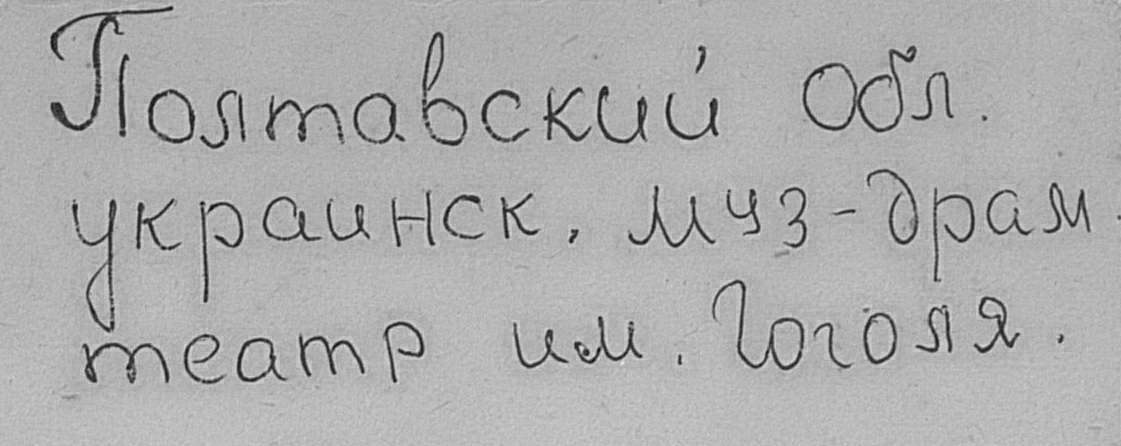 Полтавский Обл.
украинск. муз-драм.
театр им. Гоголя.